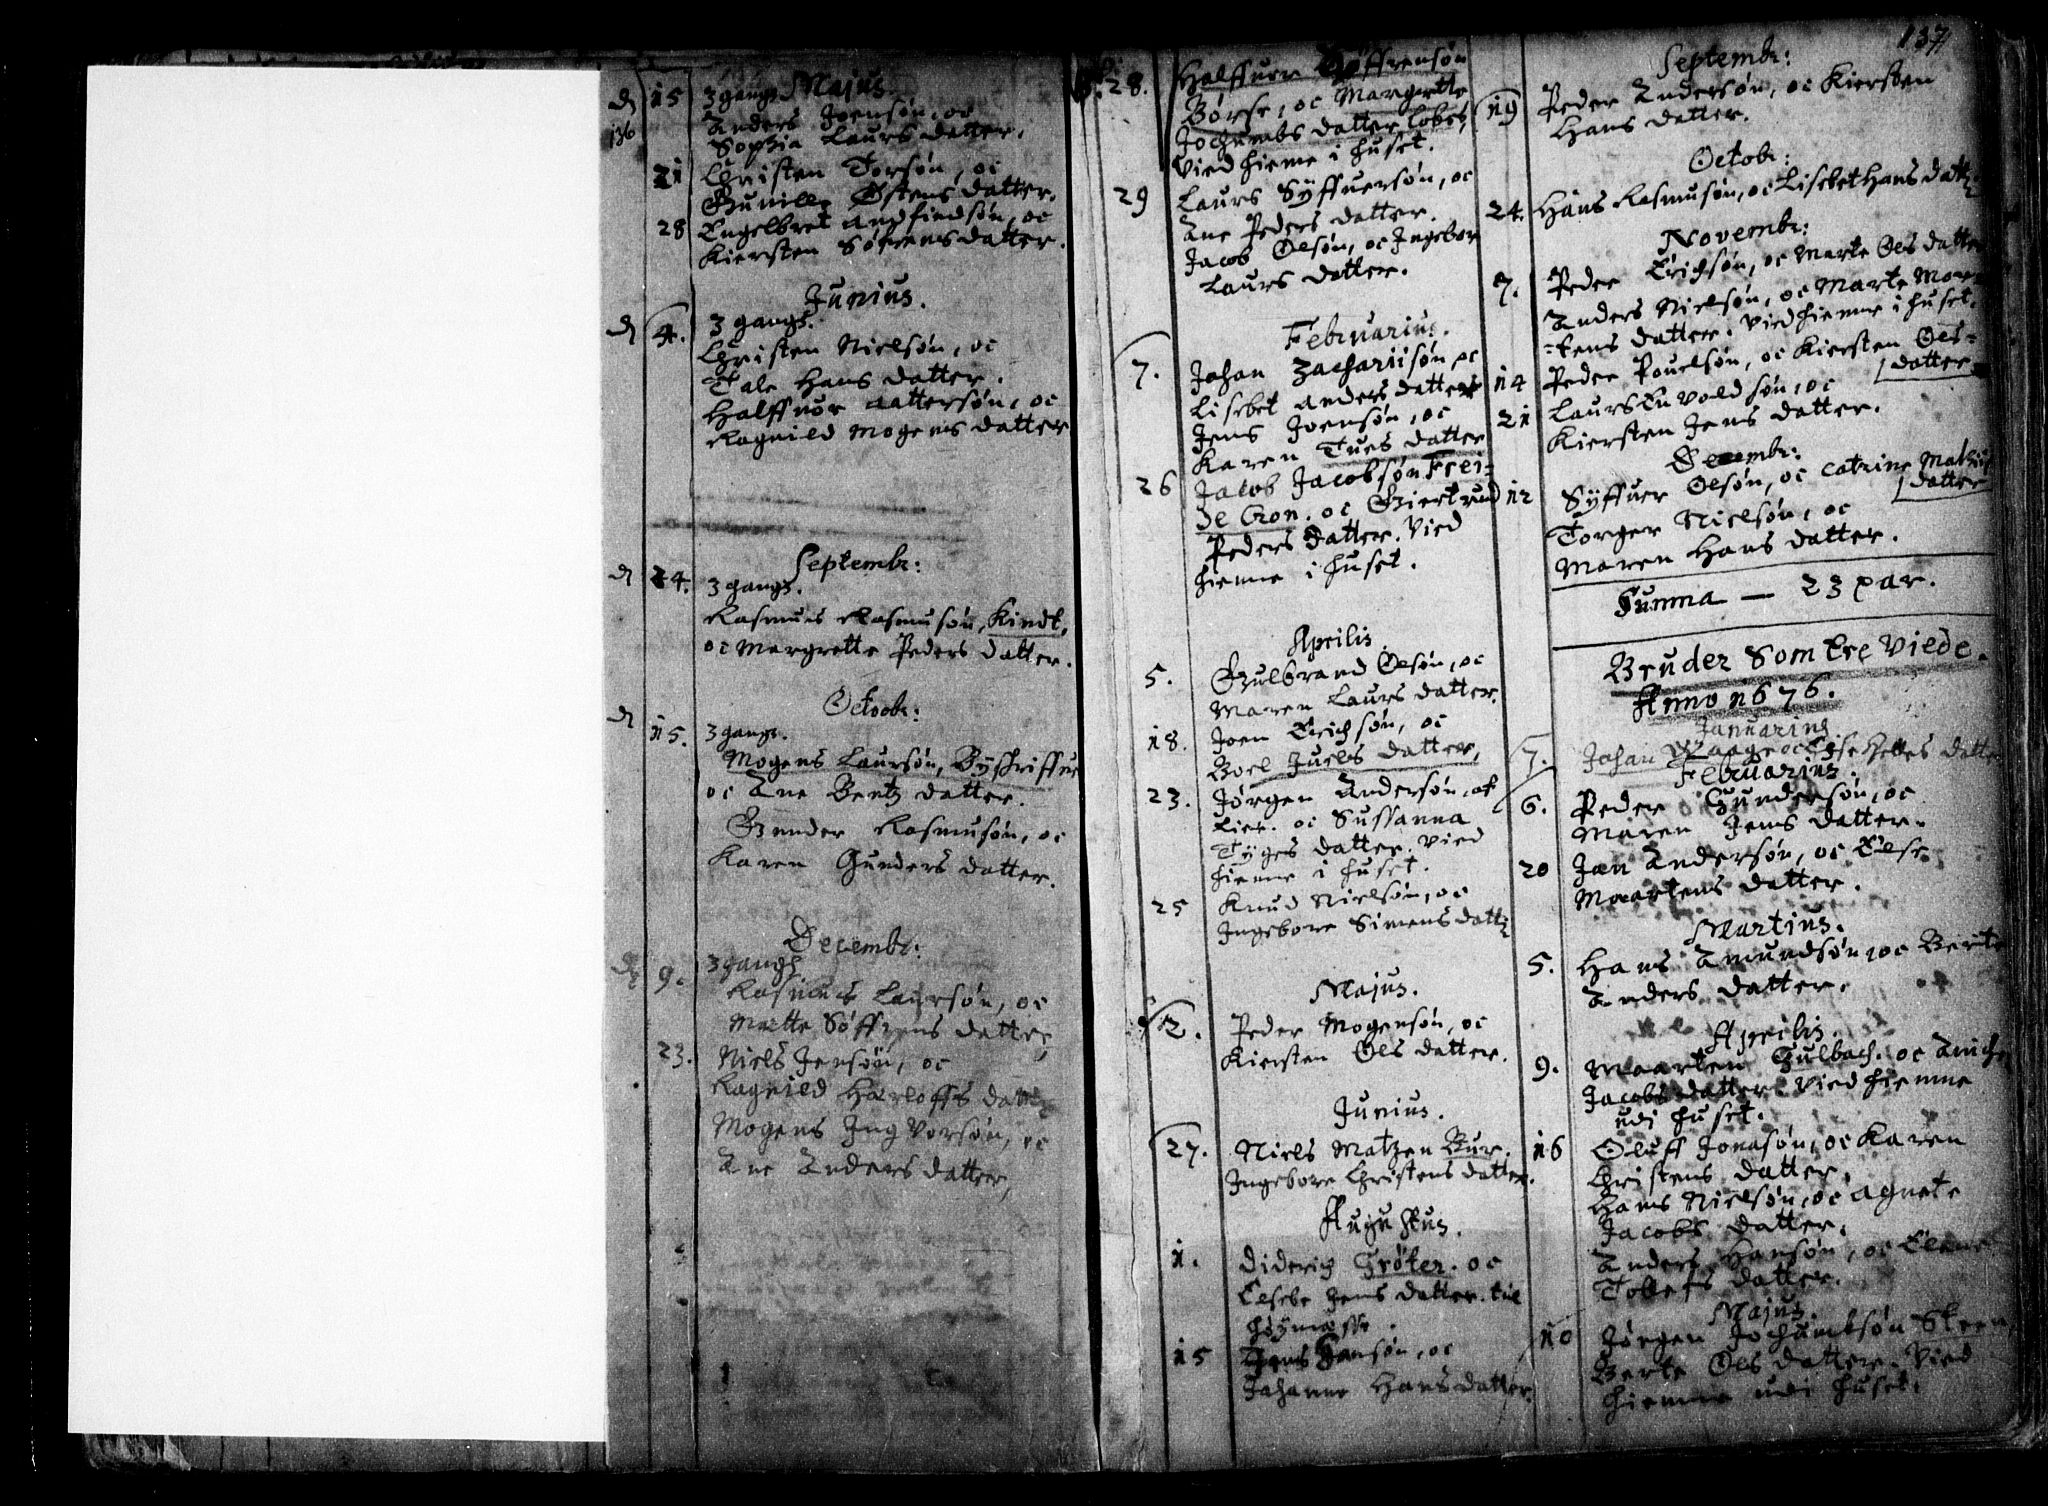 136
Majus.
D 15 3 gangs
Anders Joensøn, oc
Sophia Laurs datter.
21 Christen Torsøn, oc
Gunille Østens datter.
28 Engelbret Andfindsøn, oc
Kiersten Søfrens datter.
Junius.
D 4. 3 gangs.
Christen Nielsøn, oc
Tale Hans datter.
Halffuor aattersøn, oc
Ragnild Mogens datter
Septembr:
D 24. 3 gangs.
Rasmus Rasmusøn, Kindt,
oc Margrette Peders datter.
Octobr:
D 15. 3 gangs.
Mogens Laursøn, Byschriffue
oc Ane Bentz datter.
Gunder Rasmusøn, oc
Karen Gunders datter.
Decembr:
D 9. 3 gangs
Rasmus Laursøn, oc
Mætte Søffrens datter,
23. Niels Jensøn, oc
Ragnild Harloffs datter
Mogens Ingvorsøn, oc
Ane Anders datter,
28. Halffuer Søffrensøn
Børse, oc Margrette
Jochumbs datter Cobes,
Vied hieme i huset.
29 Laurs Syffuersøn, oc
Ane Peders datter.
Jacob Olsøn, oc Ingebor
Laurs datter.
Februarius.
7. Johan Zachariisøn oc
Lisebet Anders datter
Jens Joensøn, oc
Karen Tues datter
26 Jacob Jacobsøn Frei-
de Cron. oc Giertrud
Peders datter. Vied
hieme i huset.
Aprilis
5. Gulbrand Olsøn, oc
Maren Laurs datter.
18. Joen Erichsøn, oc
Boel Juels datter,
23. Jørgen Andersøn, af
Lier. oc Sussanna
Tyges datter. Vied
hieme i huset.
25 Knud Nielsøn, oc
Ingebore Simens datt
Majus.
12. Peder Mogensøn, oc
Kiersten Ols datter.
Junius.
27. Niels Matzen Bur.
Ingebore Christens datter.
Augustus.
1. Diderich Trøter. oc
Elsebe Jens datter. til
høymæsse.
15 Jens Hansøn, oc
Johanne Hans datter.
137
Septembr:
19 Peder Andersøn, oc Kiersten
Hans datter.
Octobr:
24. Hans Rasmusøn, oc Lisebet Hans datt
Novembr:
7. Peder Erichsøn, oc Marte Ols datter
Anders Nielsøn, oc Marte Mor-
tens datter. Vied hieme i huset.
14 Peder Pouelsøn, oc Kiersten Ols-
datter
21 Laurs Envoldsøn, oc
Kiersten Jens datter.
Decembr:
12 Syffuer Olsøn, oc Catrine Mathis
datter
Torger Nielsøn, oc
Maren Hans datter.
Summa — 23 par.
Bruder Som Ere Viede.
Anno 1676.
Januarius
7. Johan Waage oc Else Helles datter
Februarius.
6. Peder Gundersøn, oc
Maren Jens datter.
20 Jan Andersøn, oc Else
Maartens datter.
Martius.
5. Hans Amundsøn, oc Berte
Anders datter.
Aprilis
9. Maarten Gulbach. oc Aniche
Jacobs datter Vied hieme
udi huset.
16 Oluff Jonasøn, oc Karen
Christens datter.
Hans Nielsøn, oc Agnete
Jacobs datter.
Anders Hansøn, oc Elene
Tolleffs datter.
Majus.
10 Jørgen Jochumbsøn Skeen
Berte Ols datter. Vied
hieme udi huset.